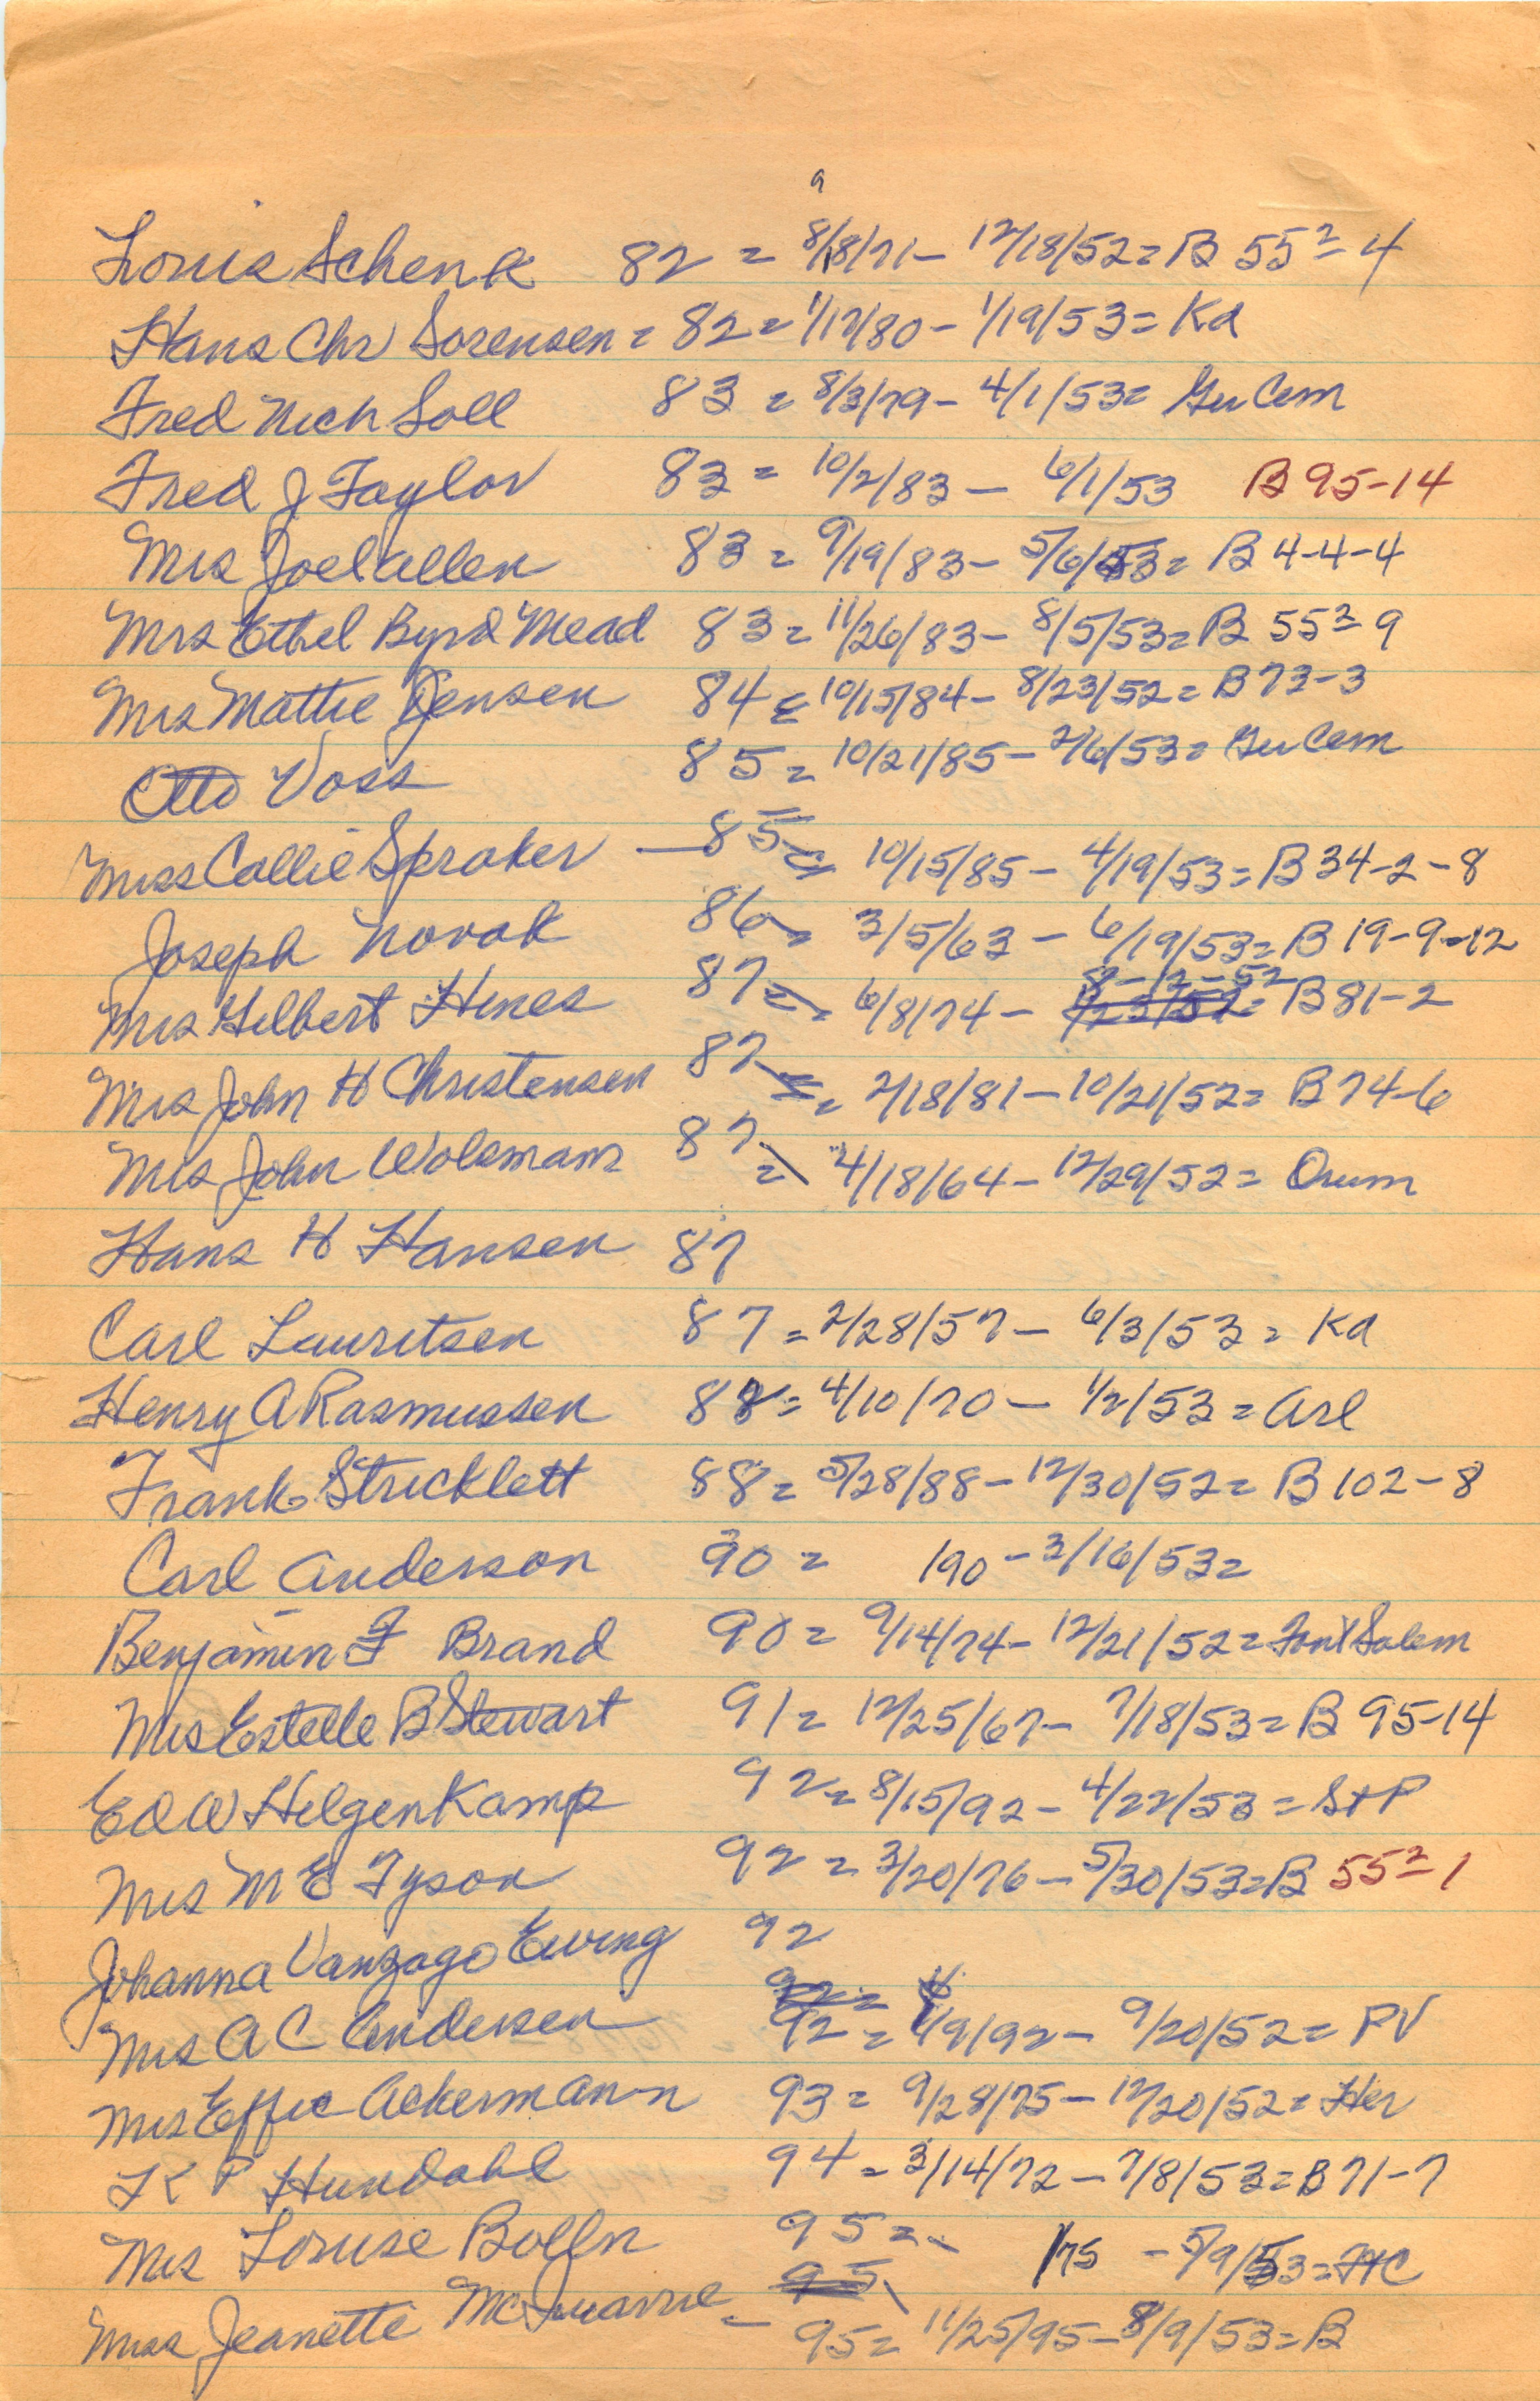 9
Louis Schenk 82 = 8/18/71 - 12/18/52 = B 55² - 4
Hans Chr Sorensen = 82 = 1/17/80 - 1/19/53 = Ka
Fred Nich Soll 83 = 8/3/79 - 4/1/53 = Ger Cem
Fred J Taylor 83 = 10/2/83 - 6/1/53 B 95-14
Mrs Joel Allen 83 = 9/19/83 - 5/6/53 = B 4-4-4
Mrs Ethel Byrd Mead 83 = 11/26/83 - 8/5/53 = B 55² - 9
Mrs Mattie Jensen 84 = 10/15/84 - 8/23/52 = B 73-3
Otto Voss 85 = 10/21/85 - 2/6/53 = Ger Cem
Miss Callie Spraker - 85 = 10/15/85 - 4/19/53 = B 34-2-8
Joseph Novak 86 = 3/5/63 - 6/19/53 = B 19-9-12
Mrs Gilbert Hines 87 = 6/8/74 - 12-52 = B 81-2
Mrs John H Christensen 87 = 2/18/81 - 10/21/52 = B 74-6
Mrs John Wolsmann 87 = 4/18/64 - 12/29/52 = Orum
Hans H Hansen 87
Carl Lauritsen 87 = 2/28/57 - 6/3/53 = Ka
Henry A Rasmussen 88 = 4/10/70 - 1/2/53 = Arl
Frank Stricklett 88 = 5/28/88 - 12/30/52 = B 102-8
Carl Anderson 90 = 190 - 3/16/53 =
Benjamin F Brand 90 = 9/14/74 - 12/21/52 = Font Salem
Mrs Estelle B Stewart 91 = 12/25/67 - 7/18/53 = B 95-14
Ed W Hilgenkamp 92 = 8/15/92 - 4/22/53 = St P
Mrs M E Tyson 92 = 3/20/76 - 5/30/53 = B 55² - 1
Johanna Vanzago Ewing 92
Mrs A C Andersen 92 = 1/9/92 - 9/20/52 = PV
Mrs Effie Ackermann 93 = 9/28/75 - 12/20/52 = Her
K P Hundahl 94 = 3/14/72 - 7/8/53 = B 71-7
Mrs Louise Bolln 95 = 1/75 - 5/9/53 = HC
Miss Jeanette McQuarrie - 95 = 11/25/95 - 8/9/53 = B